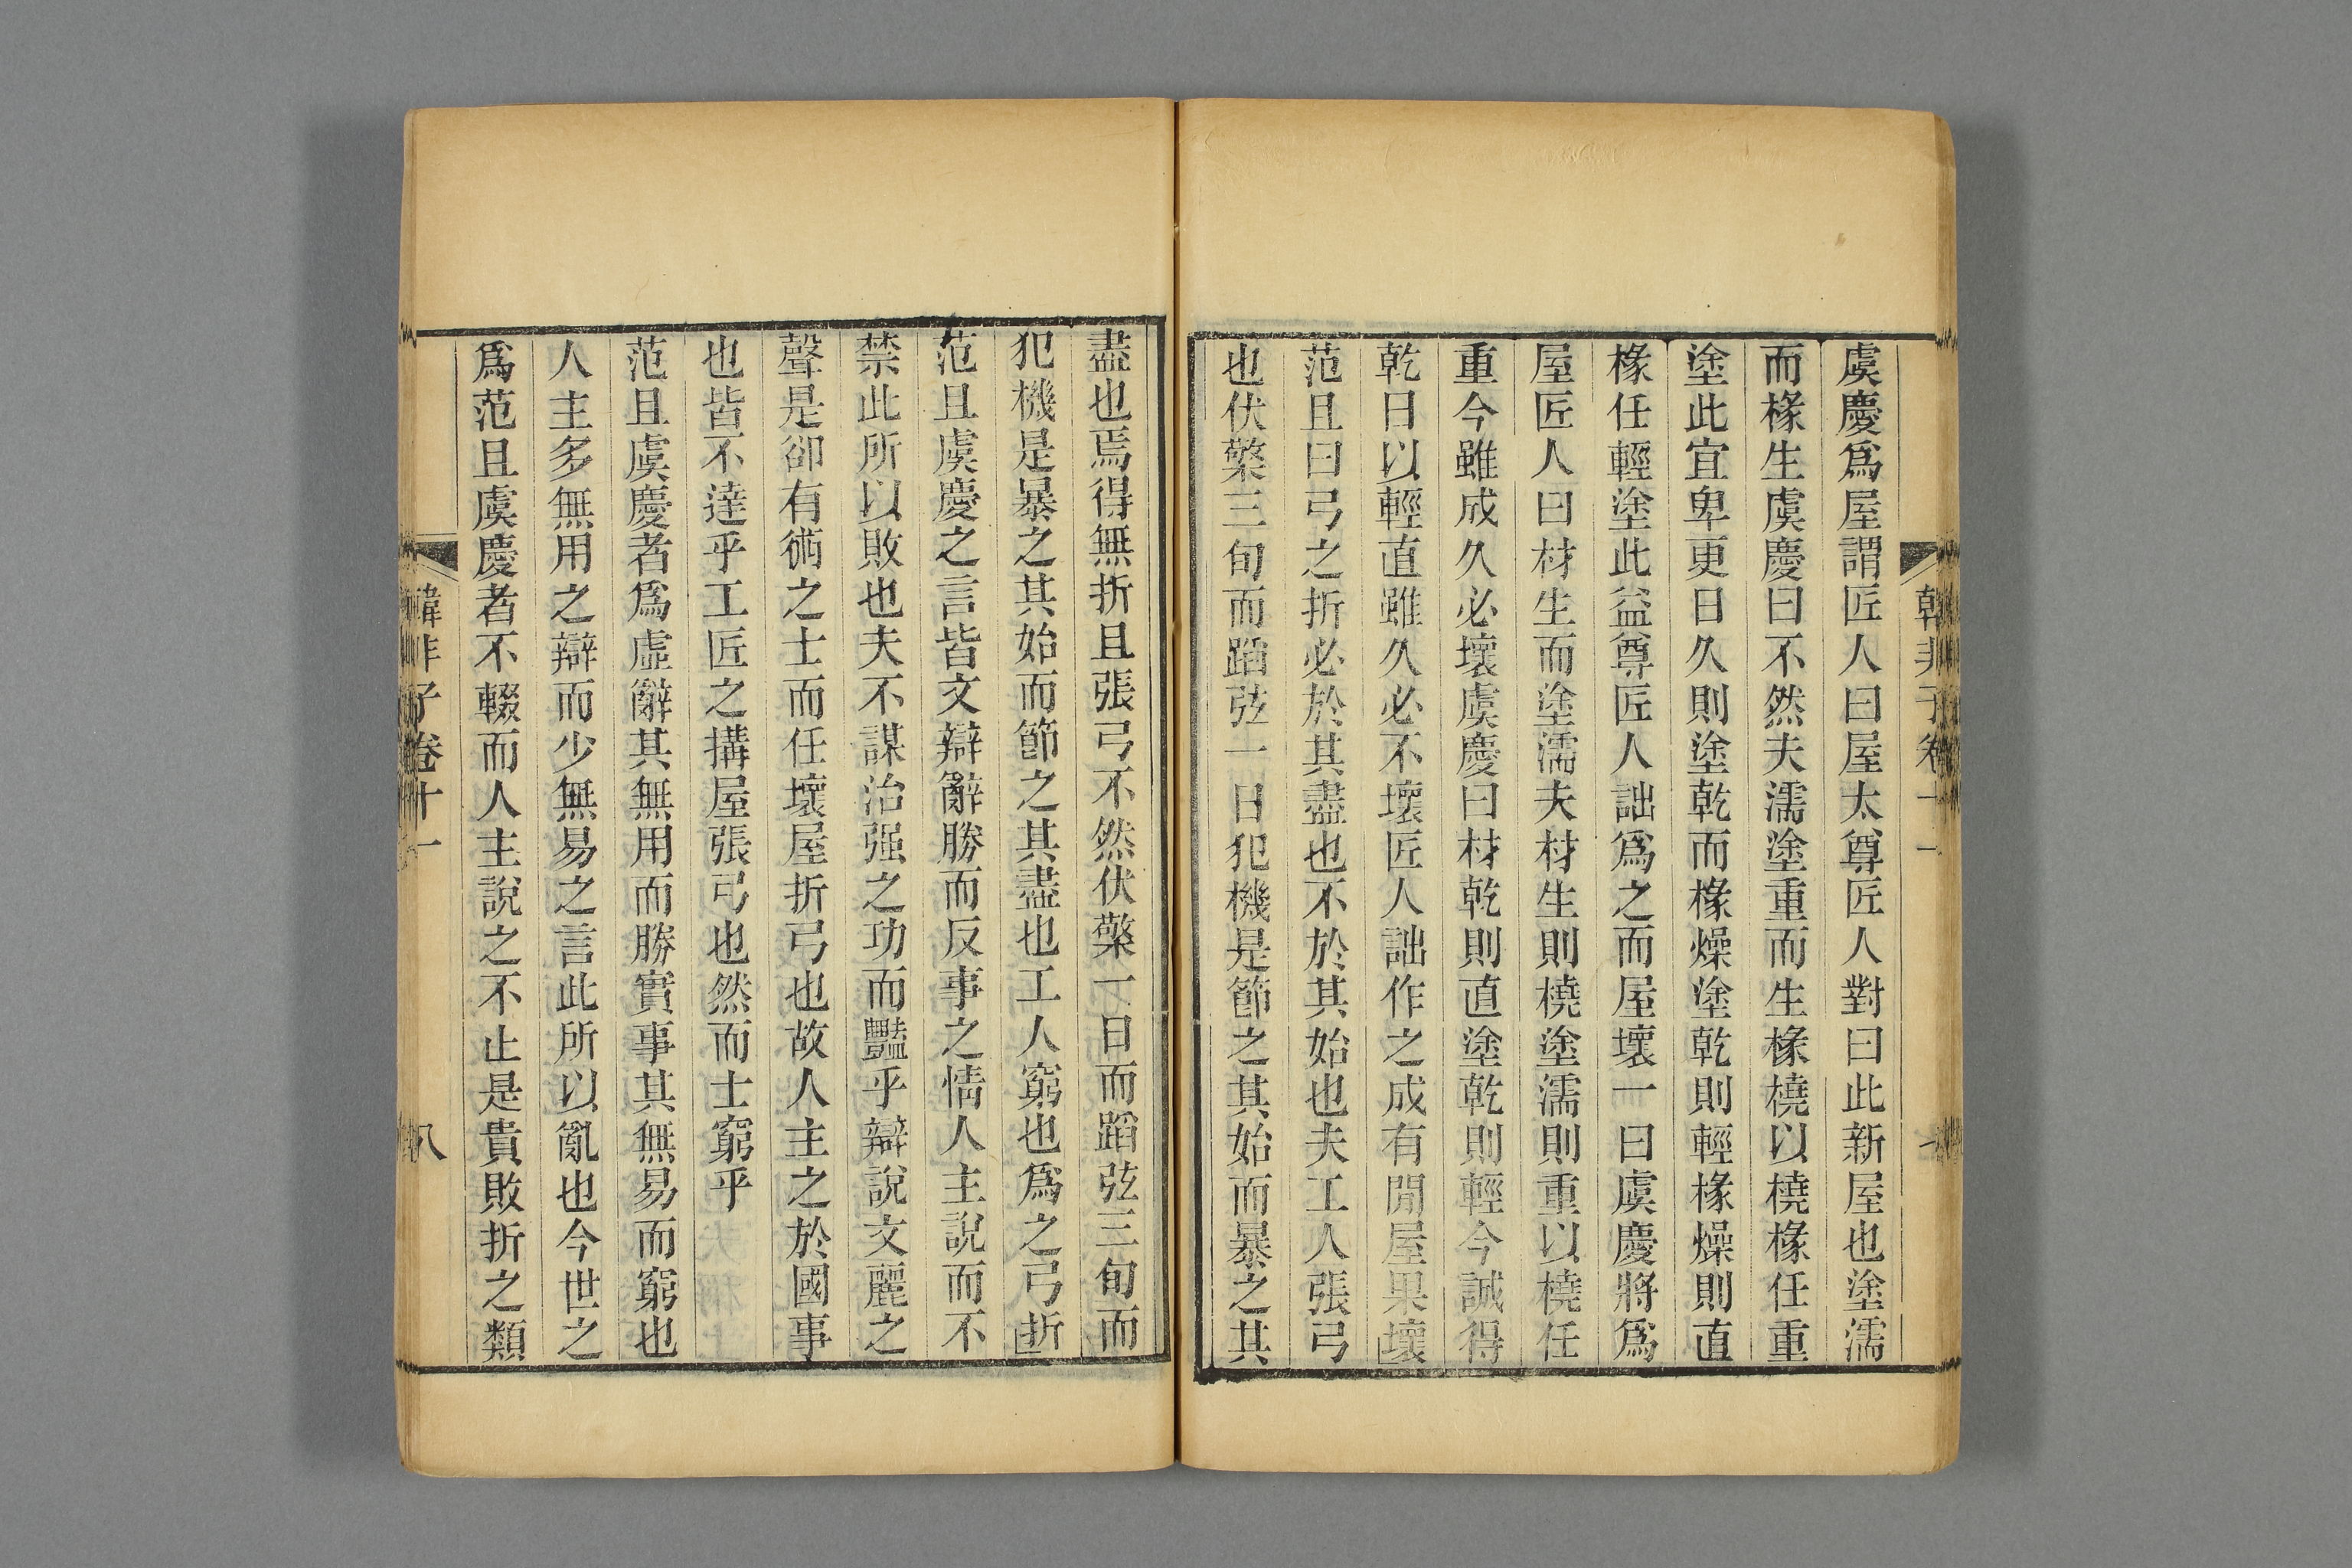 虞慶爲屋謂匠人曰屋太尊匠人對曰此新屋也塗濡
而椽生虞慶曰不然夫濡塗重而生椽橈以橈椽任重
塗此宜卑更日久則塗乾而椽燥塗乾則輕椽燥則直
椽任輕塗此益尊匠人詘爲之而屋壞一曰虞慶將爲
屋匠人曰材生而塗濡夫材生則橈塗濡則重以橈任
重今雖成久必壞虞慶曰材乾則直塗乾則輕今誠得
乾日以輕直雖久必不壞匠人詘作之成有閒屋果壞
范且曰弓之折必於其盡也不於其始也夫工人張弓
也伏檠三旬而蹈弦一日犯機是節之其始而暴之其
盡也焉得無折且張弓不然伏檠一日而蹈弦三旬而
犯機是暴之其始而節之其盡也工人窮也爲之弓折
范且虞慶之言皆文辯辭勝而反事之情人主說而不
禁此所以敗也夫不謀治强之功而豔乎辯說文麗之
聲是卻有術之士而任壞屋折弓也故人主之於國事
也皆不達乎工匠之搆屋張弓也然而士窮乎
范且虞慶者爲虛辭其無用而勝實事其無易而窮也
人主多無用之辯而少無易之言此所以亂也今世之
爲范且虞慶者不輟而人主說之不止是貴敗折之類
韓非子卷十一
八